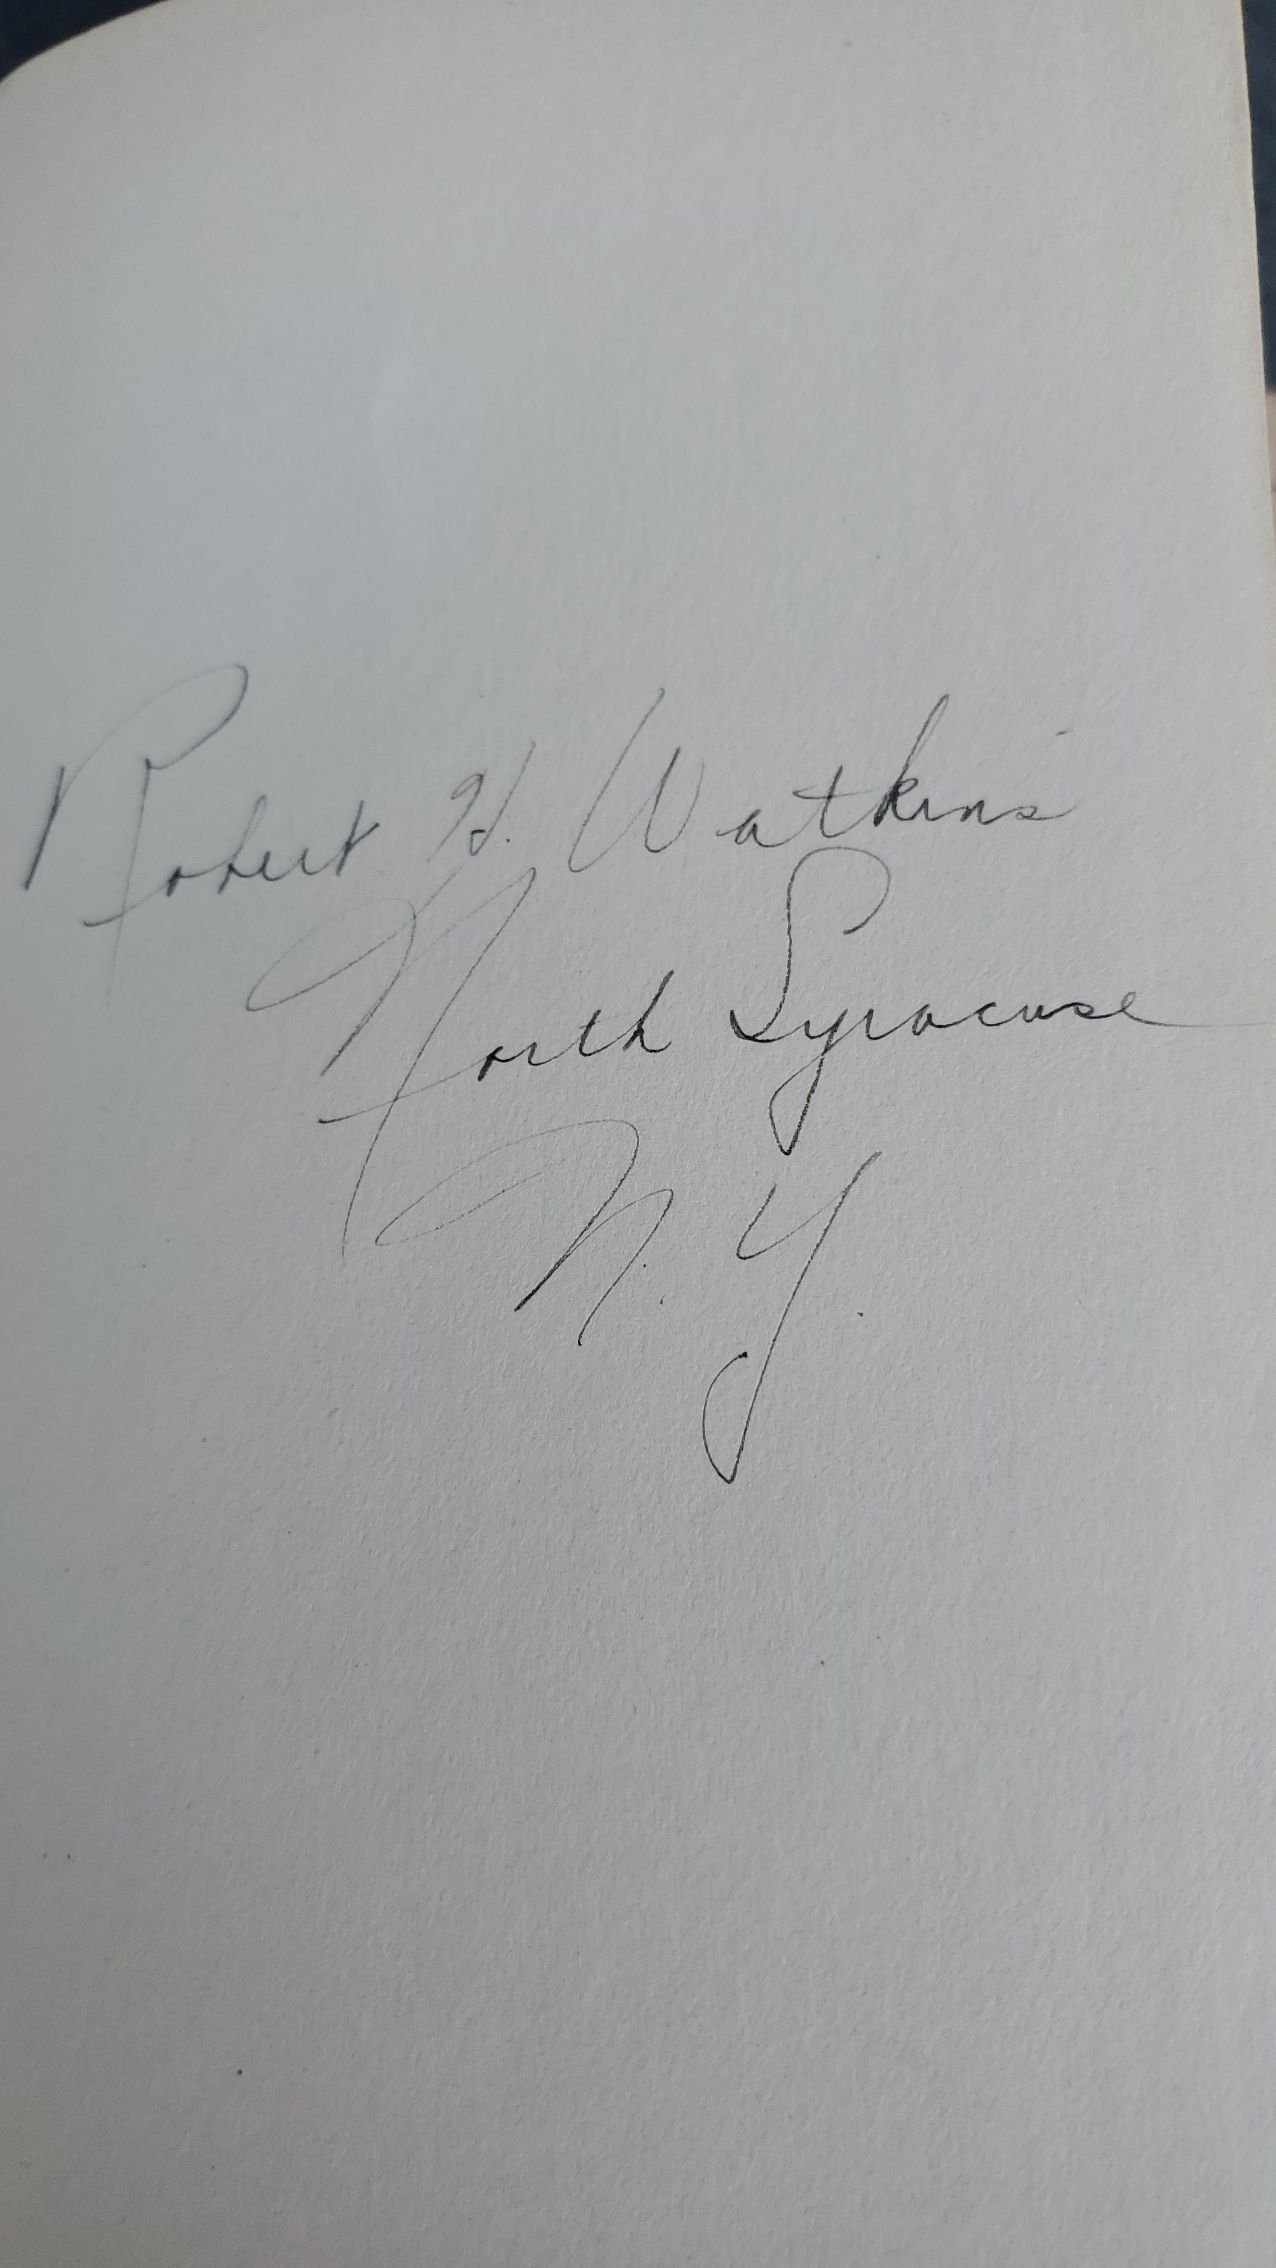 Robert H. Watkins
North Syracuse
N. Y.